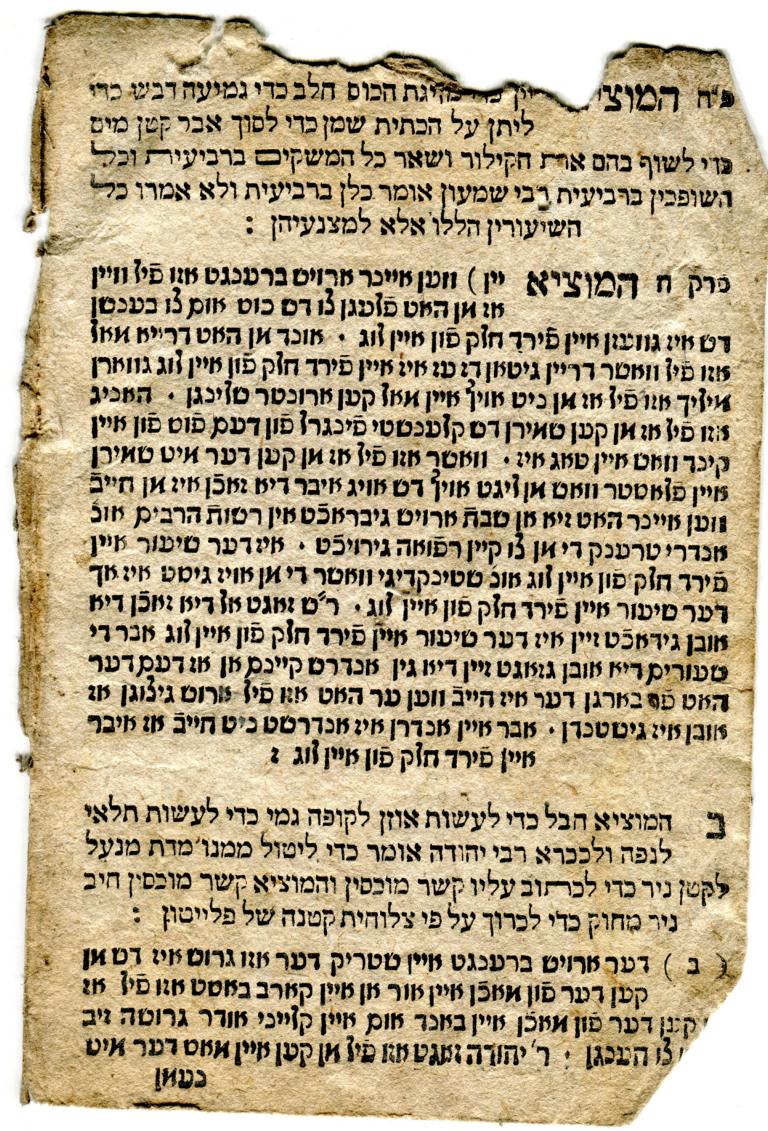 פ״ח המוציא יין כדי מזיגת הכוס חלב כדי גמיעה דבש כדי
ליתן על הכתית שמן כדי לסוך אבר קטן מים
כדי לשוף בהם את הקילור ושאר כל המשקים ברביעית וכל
השופכין ברביעית רבי שמעון אומר כלן ברביעית ולא אמרו כל
השיעורין הללו אלא למצנעיהן :
פרק ח המוציא יין ) ווען איינר ארויש ברענגט אזו פיל וויין
אז מן האט פלעגן צו דם כוס אום צו בענטשן
דש איז גוועזן איין פֿירד חלק פֿון איין לוג . אונד מן האט דרייא מאל
אזו פֿיל וואשר דריין גיטאן דז עז איז איין פֿירד חלק פֿון איין לוג גווארן
מיליך אזו פֿיל אז מן ניט אויף איין מאל קען ארונטר שלינגן . האניג
אזו פֿיל אז מן קען שמירן דש קלענשטי פֿינגרל פֿון דעם פֿוס פֿון איין
קינד וואש איין טאג איז . וואשר אזו פֿיל אז מן קען דער מיט שמירן
איין פלאשטר וואש מן ליגט אויף דש אויג איבר דיא זאכֿן איז מן חייבֿ
ווען איינר האט זיא אן שבת ארויש גיבראכֿט אין רשות הרבים אונ
אנדרי טרענק די מן צו קיין רפואה גירויכֿט . איז דער שיעור איין
פֿירד חלק פֿון איין לוג אונ שטינקדיגי וואשר די מן אויז גיסט איז אך
דער שיעור איין פֿירד חלק פֿון איין לוג . ר״ש זאגט אל דיא זאכֿן דיא
אובן גידאכֿט זיין איז דער שיעור איין פֿירד חלק פֿון איין לוג אבר די
שעורים דיא אובן גזאגט זיין דיא גין אנדרש קיינם אן אז דעם דער
האט פֿר בארגן דער איז חייבֿ ווען ער האט אזו פֿיל ארוש גיצוגן אז
אובן איז גישטנדן . אבר איין אנדרן איז אנדרשט ניט חייבֿ אז איבר
איין פֿירד חלק פֿון איין לוג :
ב המוציא חבל כדי לעשות אוזן לקופה גמי כדי לעשות תלאי
לנפה ולכברא רבי יהודה אומר כדי ליטול ממנו מדת מנעל
לקטן ניר כדי לכתוב עליו קשר מוכסין והמוציא קשר מוכסין חיב
ניר מחוק כדי לכרוך על פי צלוחית קטנה של פלייטון :
( ב ) דער ארויש ברענגט איין שטריק דער אזו גרוש איז דש מן
קען דער פֿון מאכֿן איין אור אן איין קארב באסט אזו פֿיל אז
קען דער פֿון מאכֿן איין באנד אום איין קלייני אודר גרושה זיב
צו הענגן : ר׳ יהודה זאגט אזו פֿיל מן קען איין מאס דער מיט
נעמן